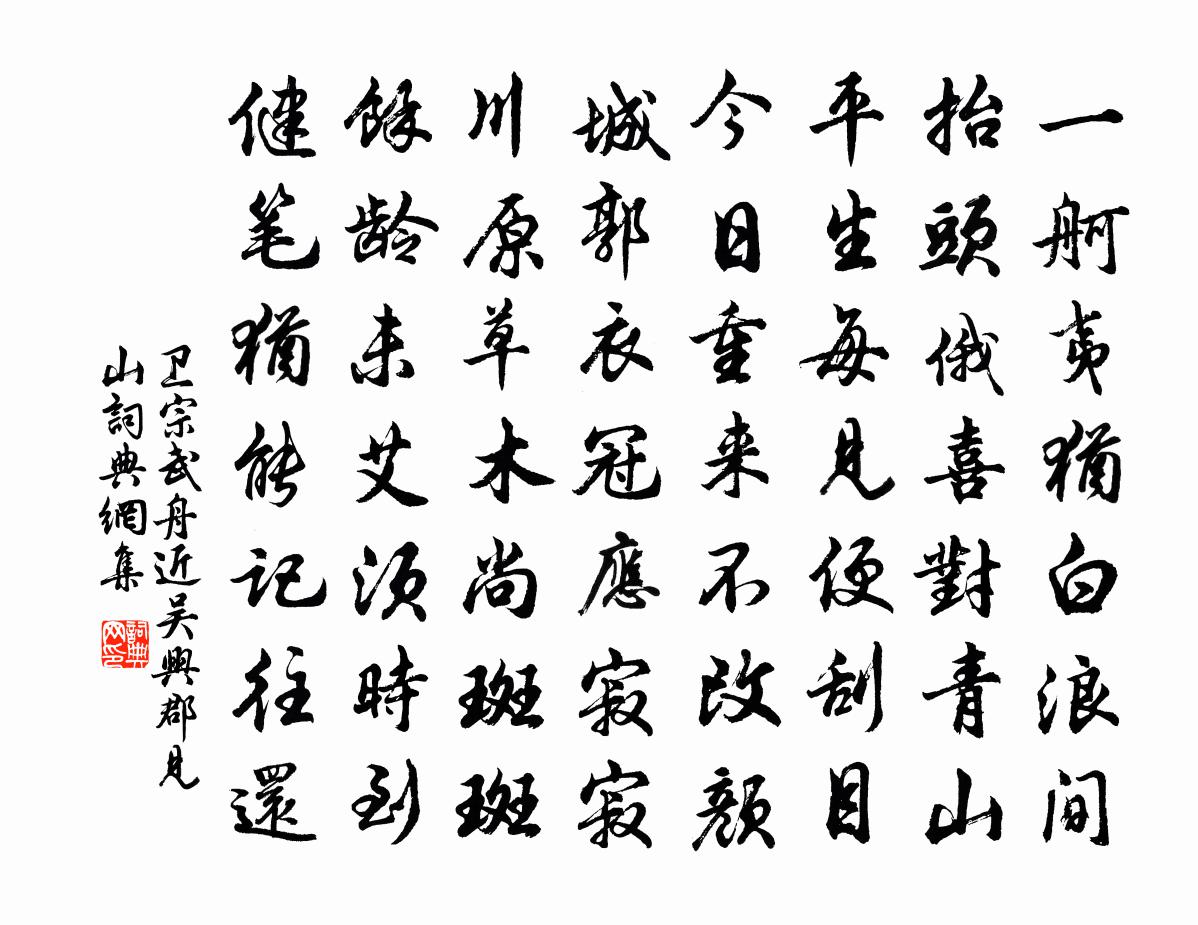 一舸夷犹白浪间
抬頭俄喜對青山
平生每見便刮目
今日重来不改颜
城郭衣冠應寂寂
川原草木尚斑斑
餘龄未艾须時到
健笔猶能记往還
卫宗武舟近吴興郡見
山詞典網集
詞典
网印